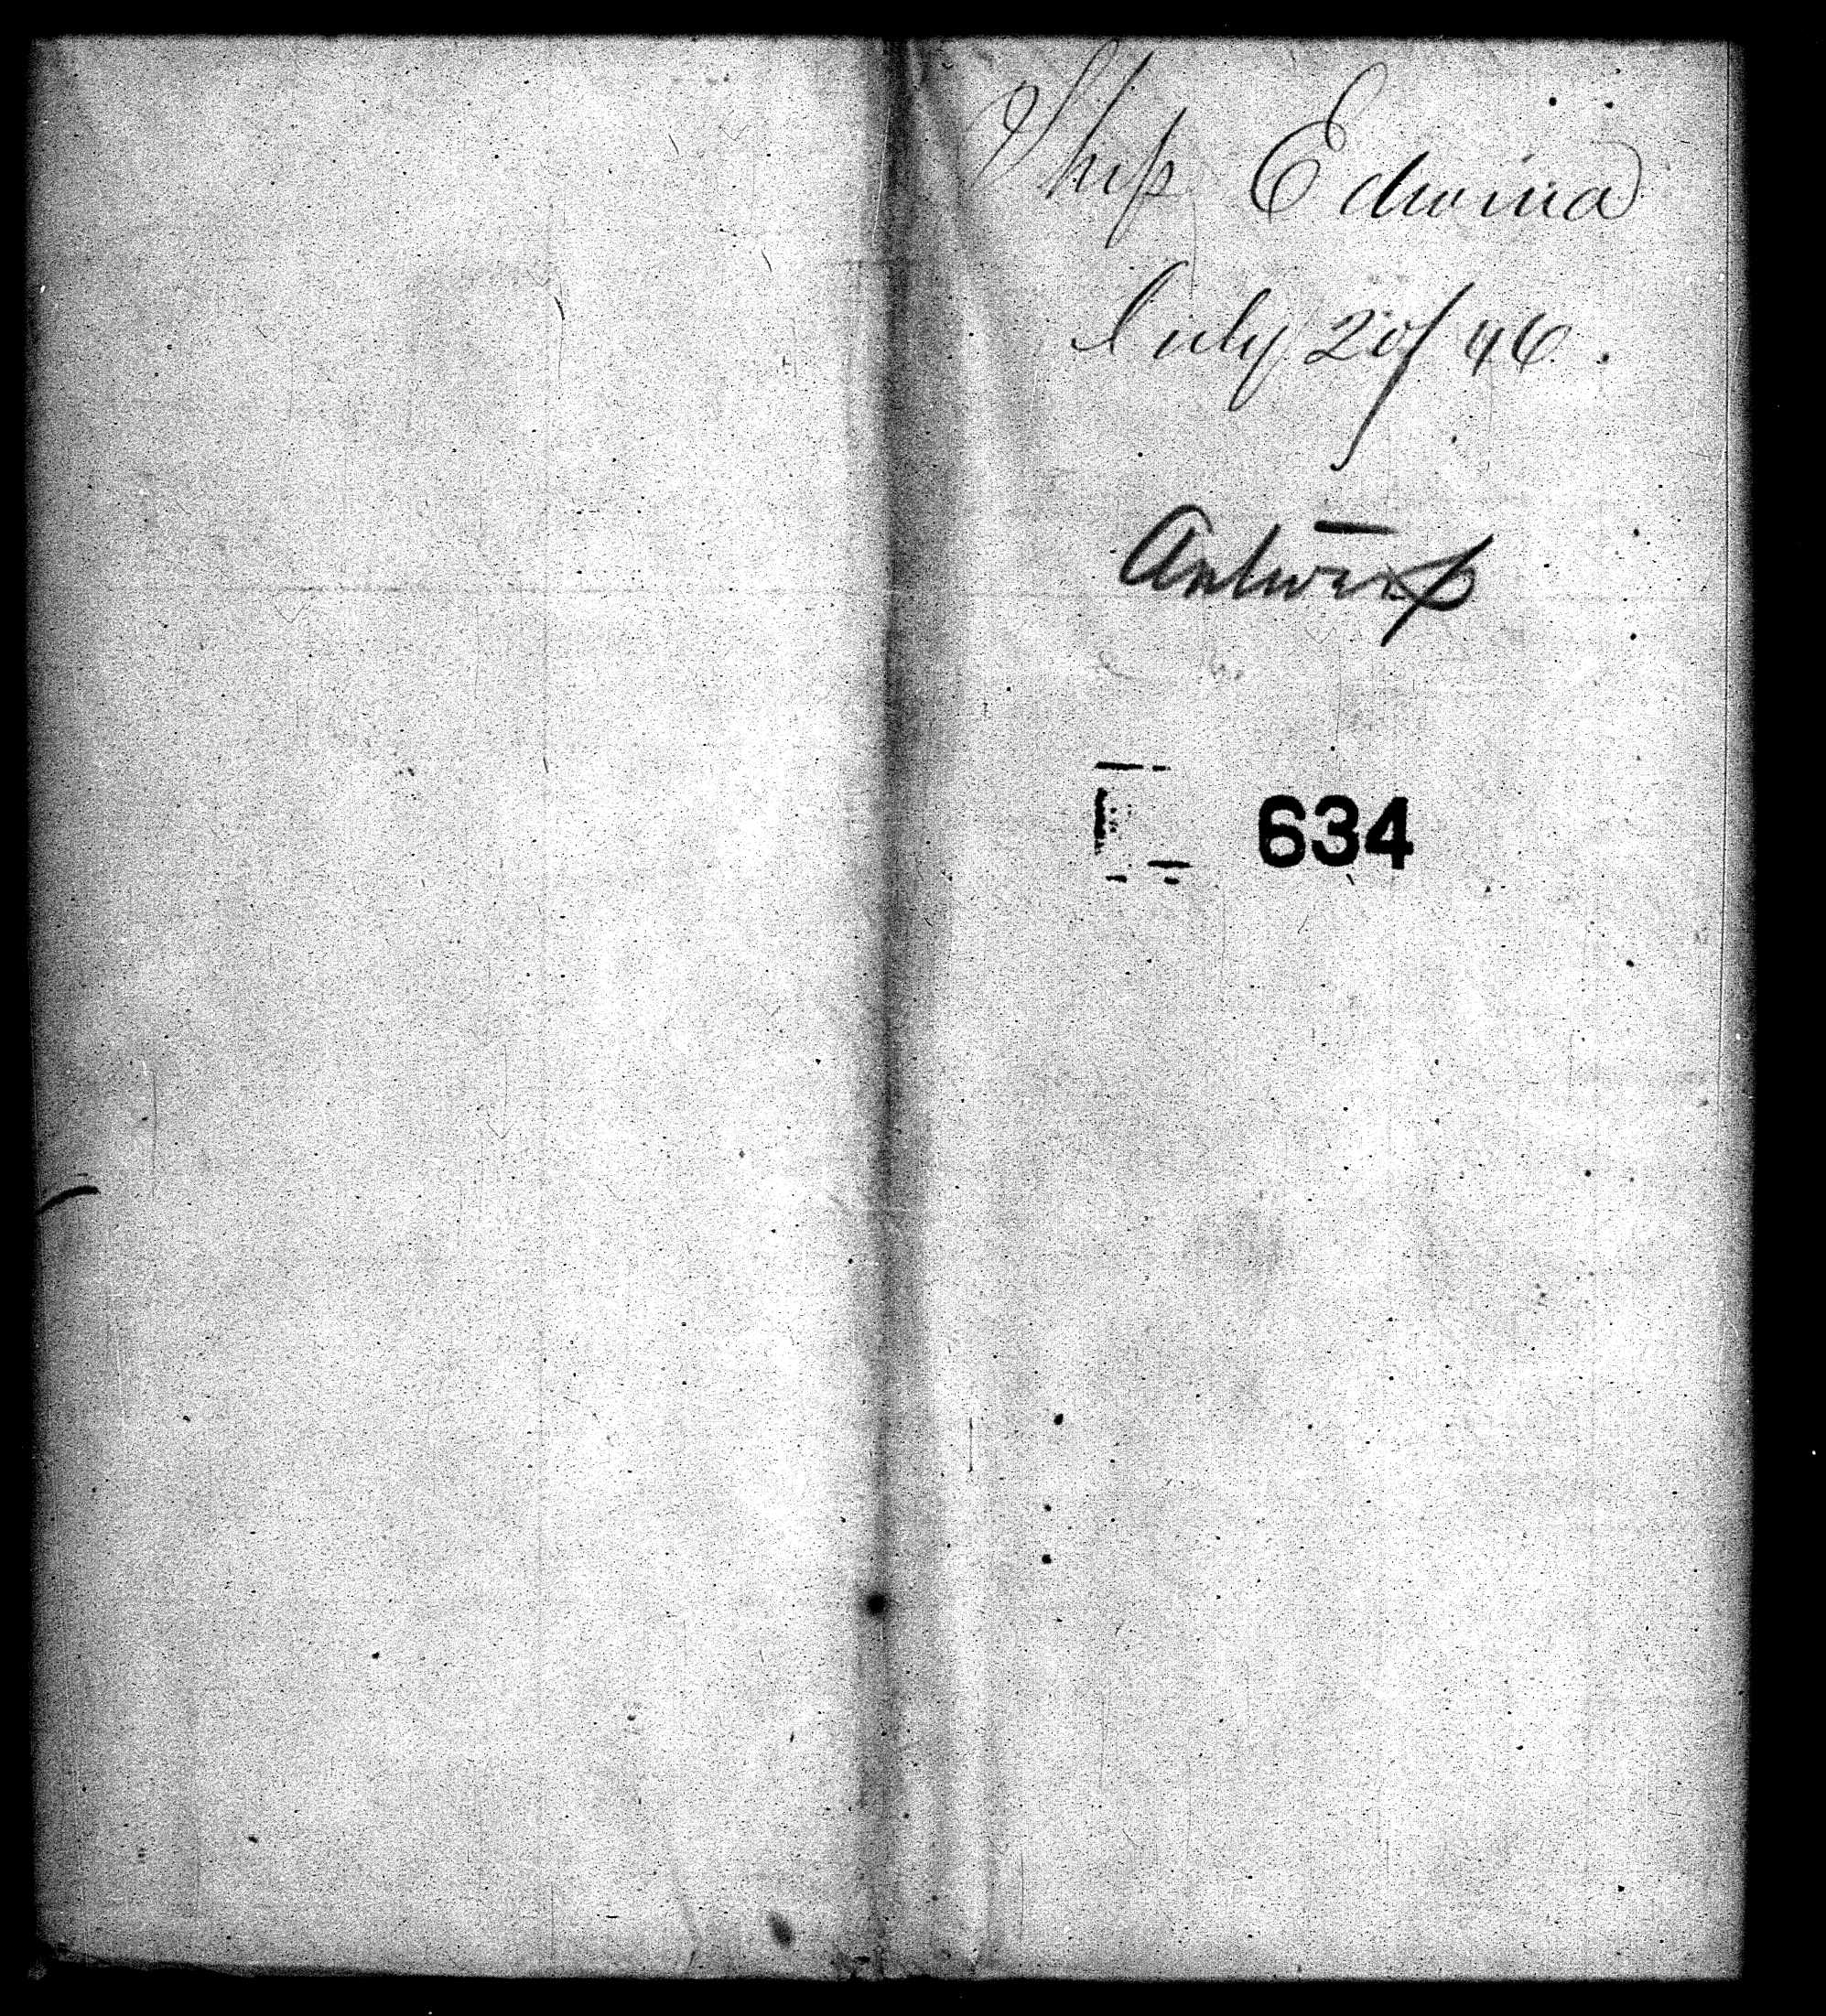 Ship Edwina
July 20/46.
Antwerp
634